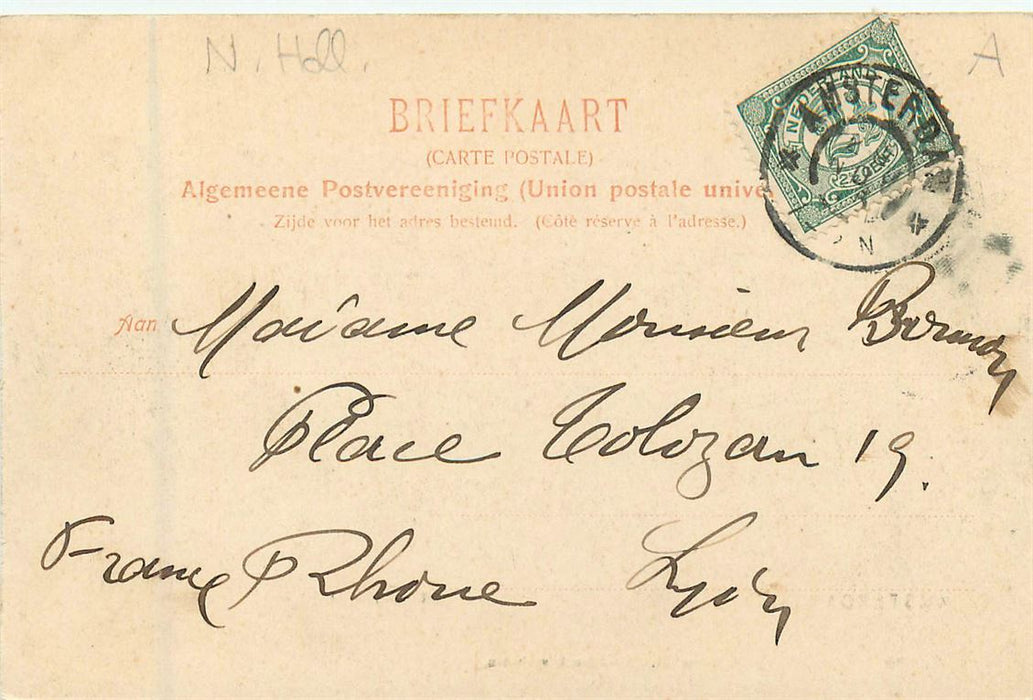 N. Holl. A
BRIEFKAART
(CARTE POSTALE)
Algemeene Postvereeniging (Union postale unive
Zijde voor het adres bestemd. (Côté réservé à l'adresse.)
NEDERLAND
2½ CENT
AMSTERDAM
Aan Madame Monsieur
Place Tolozan 19.
France Rhone Lyon